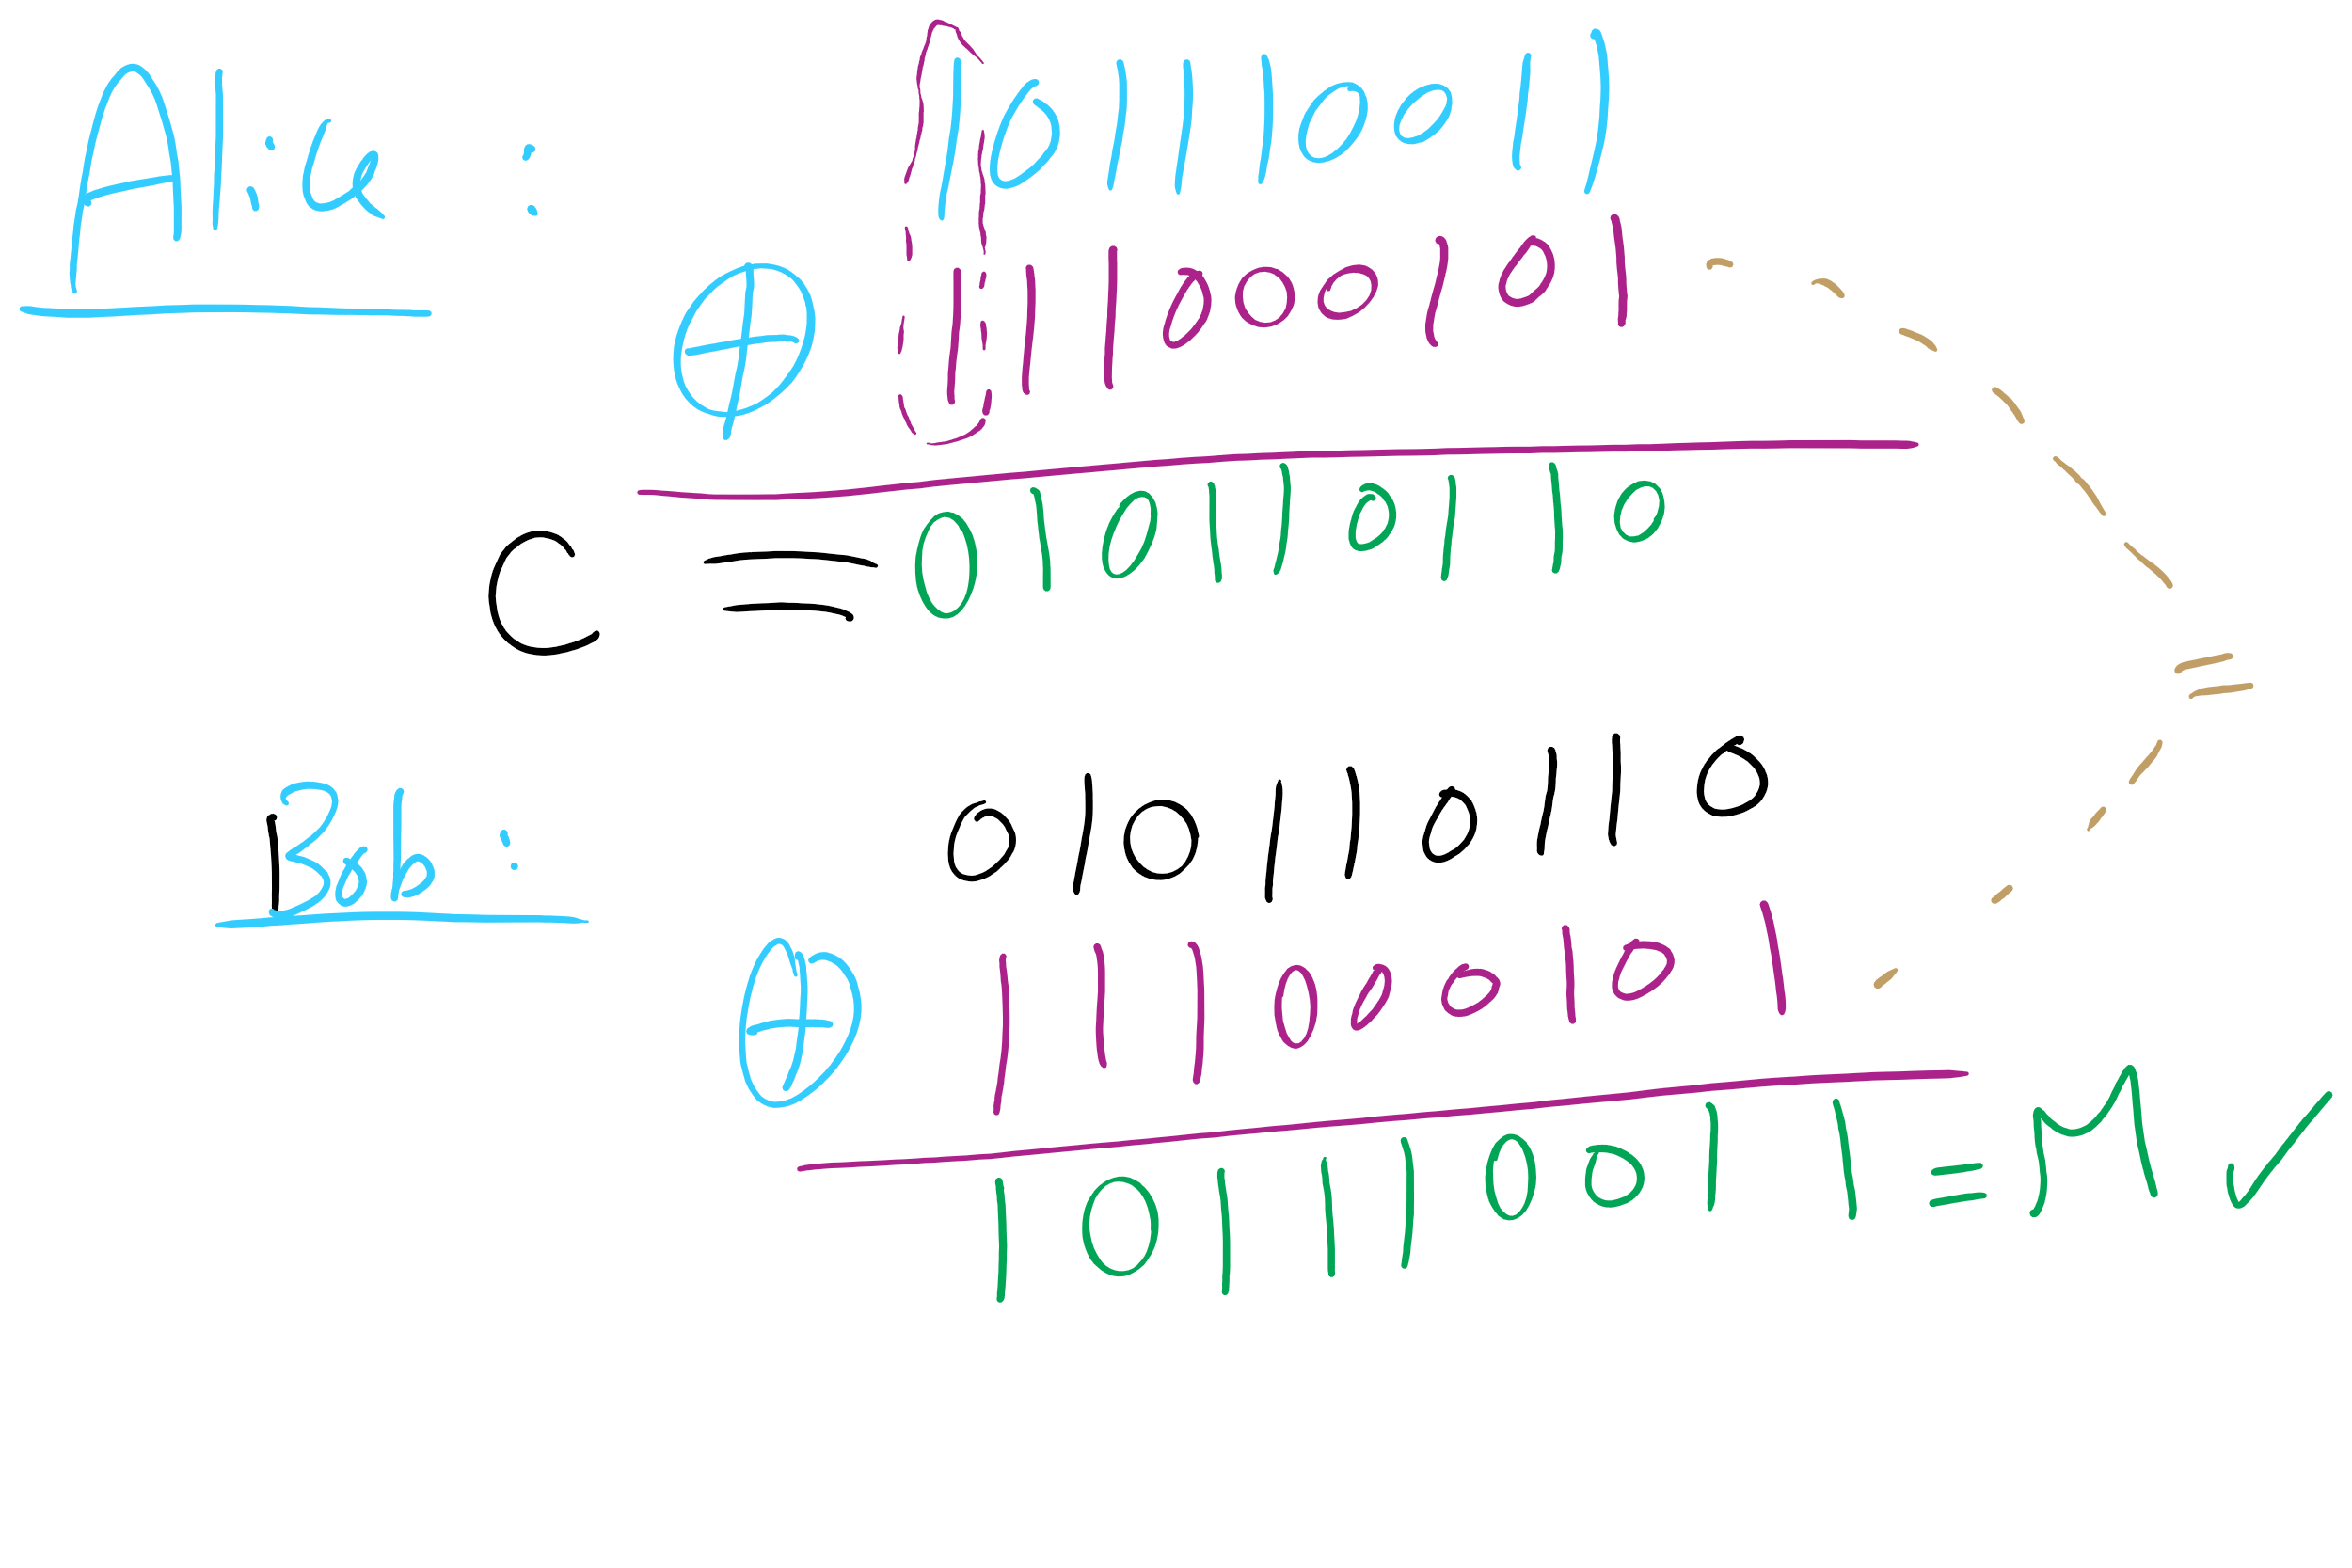 Alice : 101110011
⊕ 111000101
C = 010110110
=
Bob : 010110110
⊕ 111000101
101110011 = M ✓